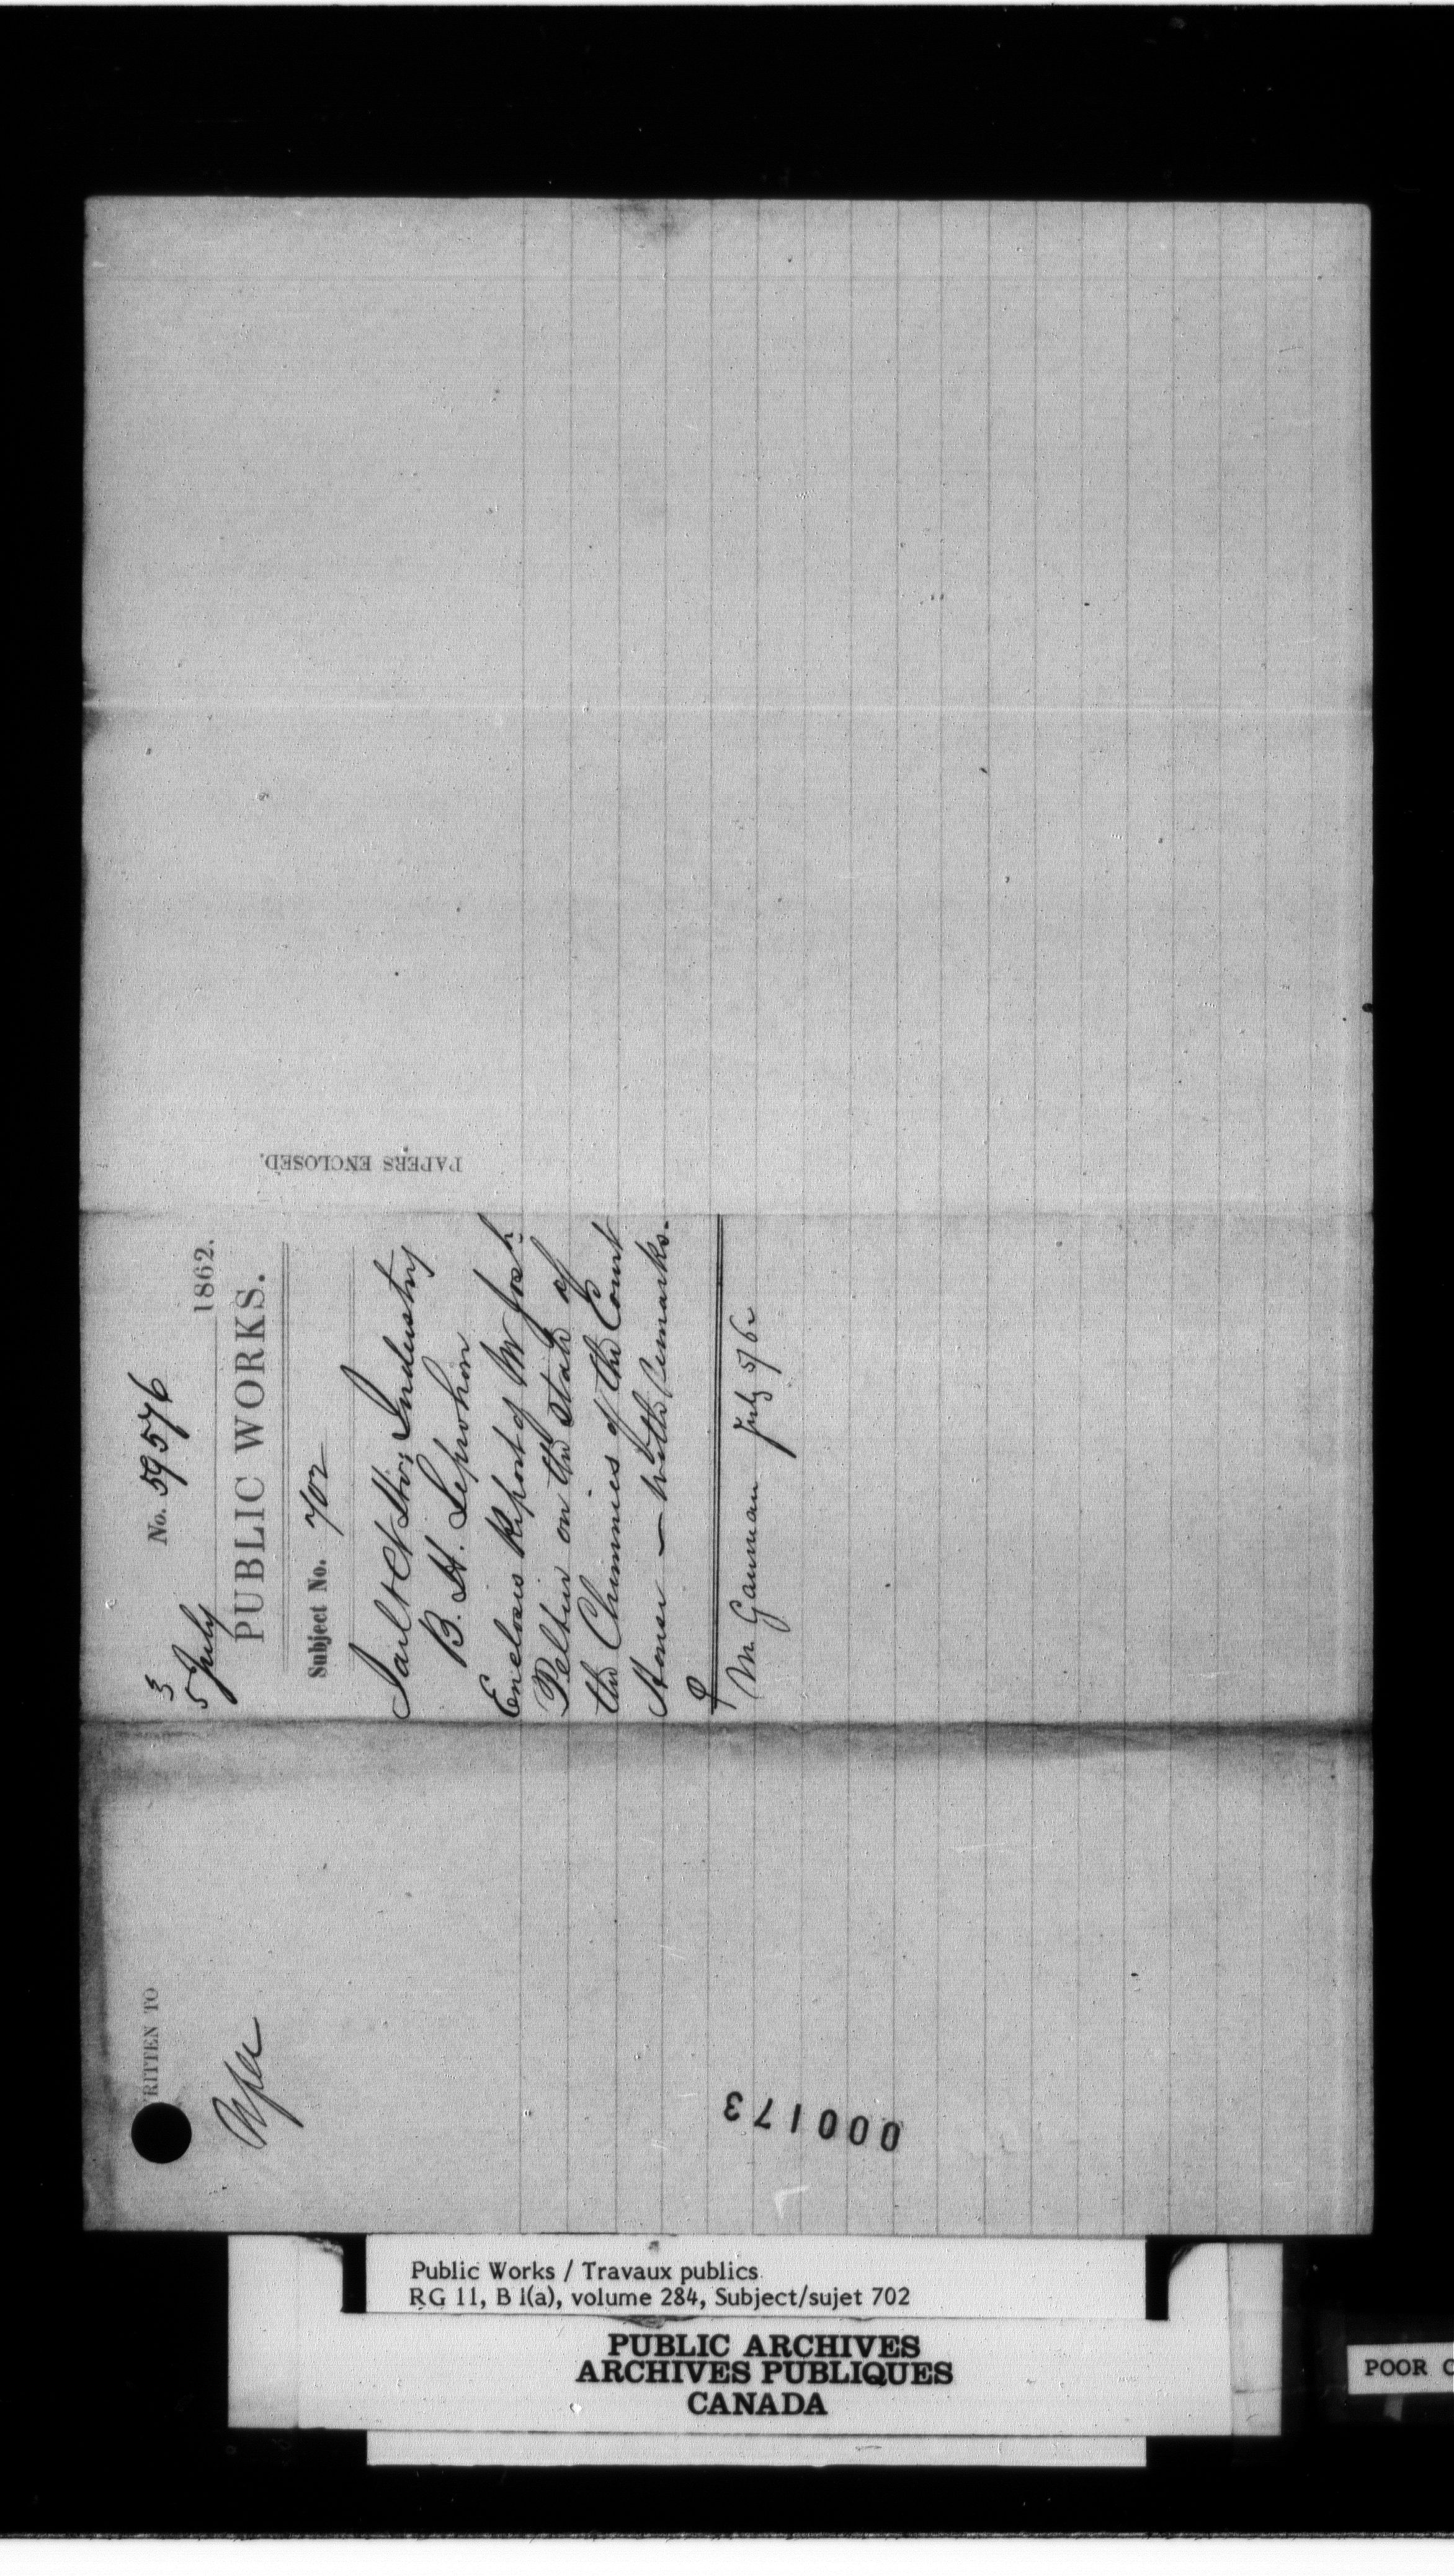 No. 59576
3
5 July 1862.
PUBLIC WORKS.
Subject No. 702
Jail & Ct Ho, Industry
B. H. Leprohon
Encloses Report of Mr Josh
Peltier on the state of
the Chimnies of the Court
House — with Remarks.
Mr Gauvreau July 5/62
PAPERS ENCLOSED.
RITTEN TO
000173
Public Works / Travaux publics
RG 11, B 1(a), volume 284, Subject/sujet 702
PUBLIC ARCHIVES
ARCHIVES PUBLIQUES
CANADA
POOR C